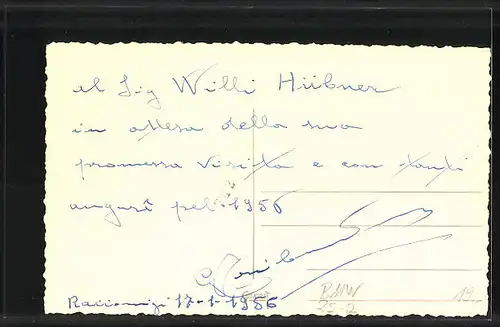 al Sig Willi Hübner
in attesa della sua
promessa visita e con tanti
auguri pel 1956
Racconigi 17-1-1956
BMW
25-2
19